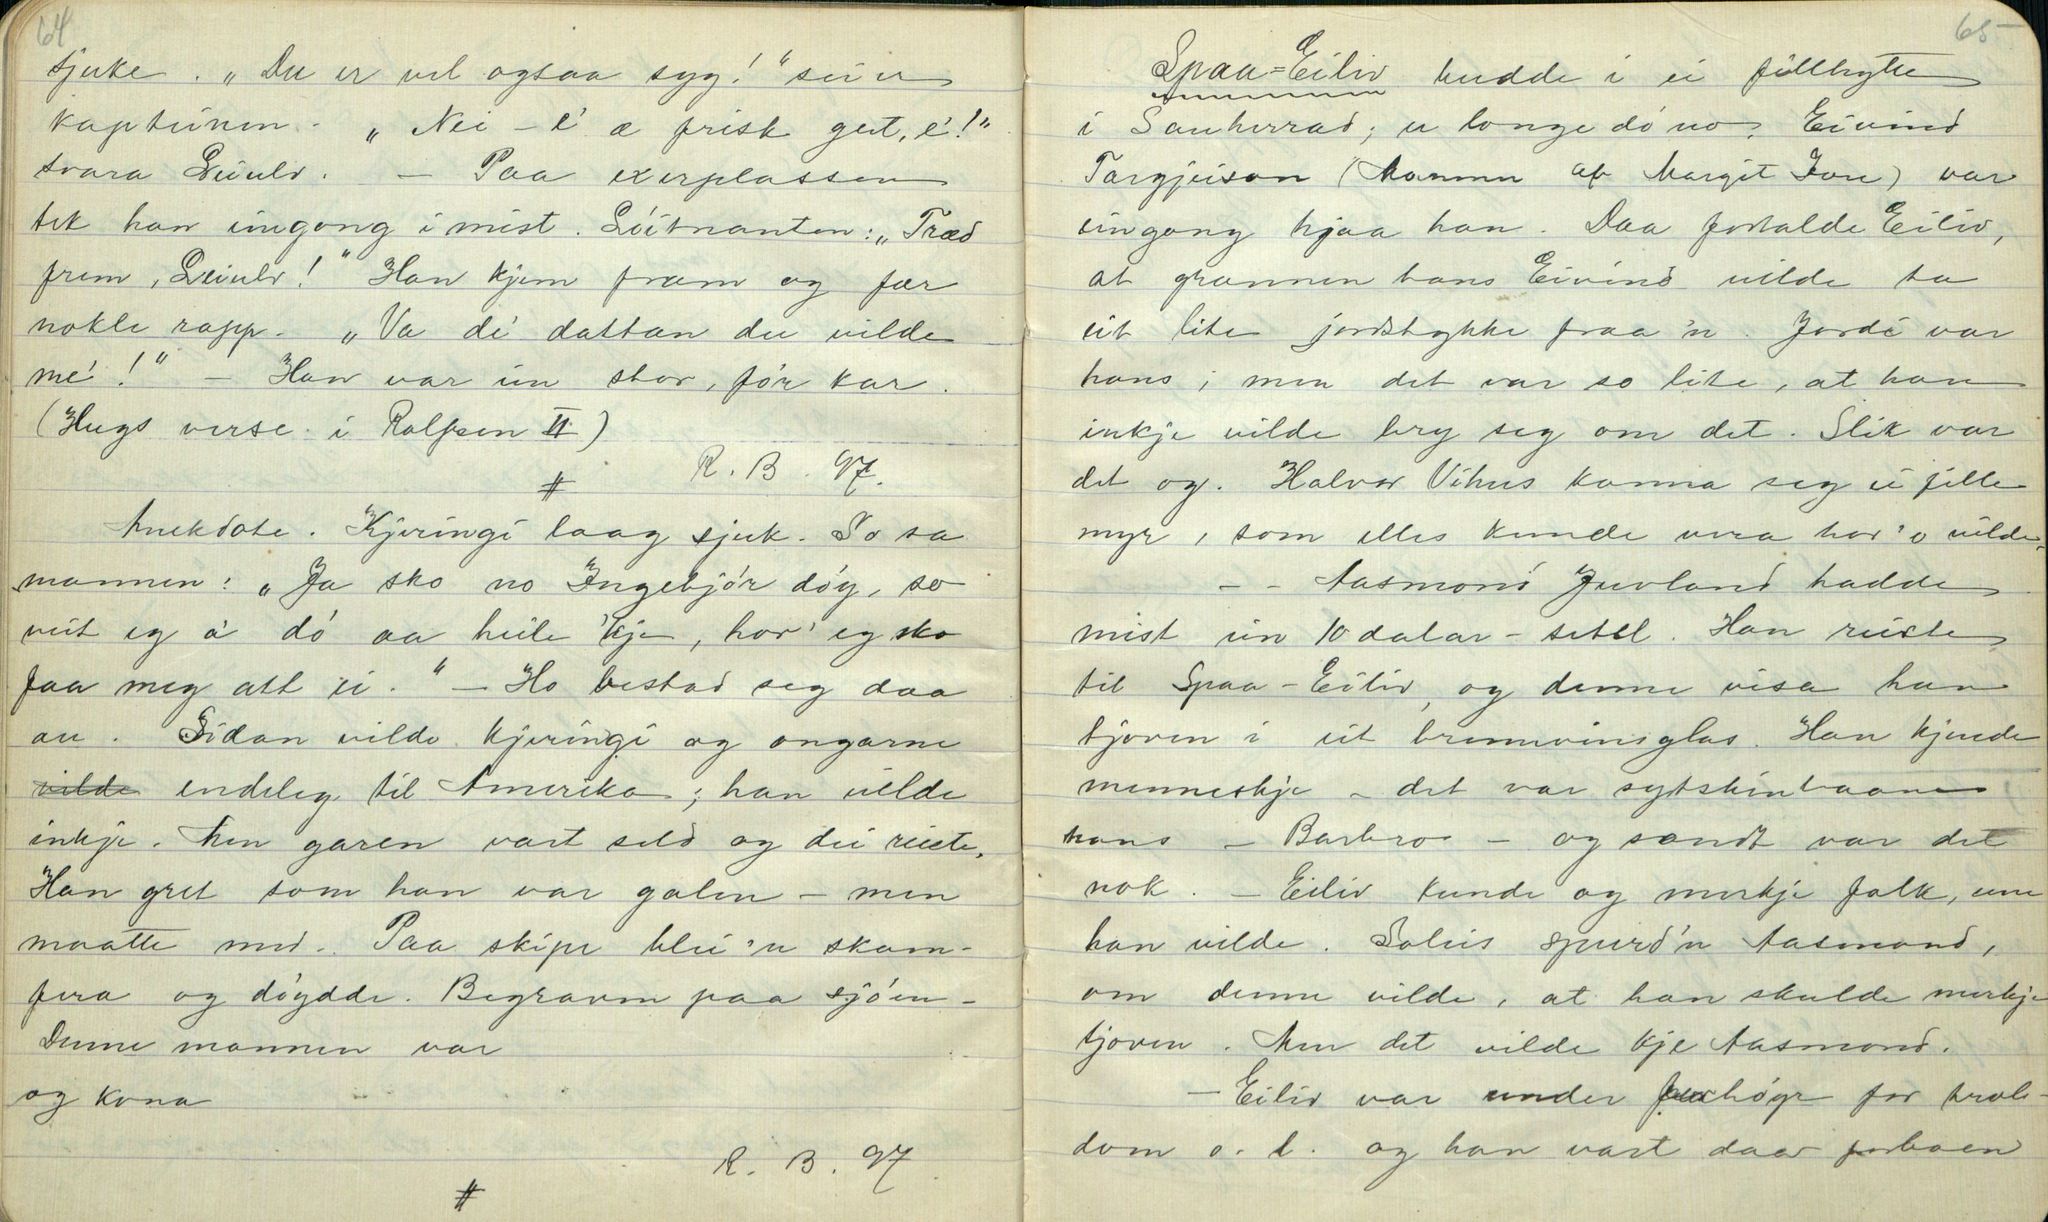 64
sjuke. „Du er vel ogsaa syg!" seier
kapteinen. „Nei – e' æ frisk gut, e'!"
svara Leiulv. – Paa exerplassen
tek han eingong i mist. Löitnanten: „Træd
frem, Leiulv!" Han kjem fram og fær
nokle rapp. „Va de' dattan du vilde
me'!" – Han var ein stor, för kar.
(Hugs verse i Rolfsen II)
R. B. 97.
#
Anekdote. Kjeringi laag sjuk. So sa
mannen: „Ja sko no Ingebjör döy, so
veit eg d' dö aa heile 'kje, hor' eg sko
faa meg att ei." – Ho bestad seg daa
au. Sidan vilde kjeringi og ongarne
vilde endeleg til Amerika; han vilde
inkje. Men garen vart seld og dei reiste.
Han gret som han var galen – men
maatte med. Paa skipe blei 'n skam-
fera og döydde. Begraven paa sjöen –
Denne mannen var
og kona
R. B. 97
#
65
Spaa-Eiliv budde i ei fillhytte
i Sauherrad; er longe dö no. Eivind
Targjeison (Mannen af Margit Jore) var
eingong hjaa han. Daa fortalde Eiliv,
at grannen hans Eivind vilde ta
eit lite jordstykke fraa 'n. Jordi var
hans; men det var so lite, at han
inkje vilde bry seg om det. Slik var
det og. Halvor Vihus kanna seg ei fille
myr, som elles kunde vera hor'o vilde.
– – Aasmond Juvland hadde
mist ein 10 dalar-setel. Han reiste
til Spaa-Eiliv, og denne visa han
tjoven i eit brennevinsglas. Han kjende
menneskje – det var sytskinbaane
hans – Barbro – og sandt var det
nok. – Eiliv kunde og merkje folk, um
han vilde. Soleis spurd'n Aasmond,
om denne vilde, at han skulde merkje
tjoven. Men det vilde kje Aasmond.
– Eiliv var under forhöyr for trol-
dom o. l. og han vart daa forboen